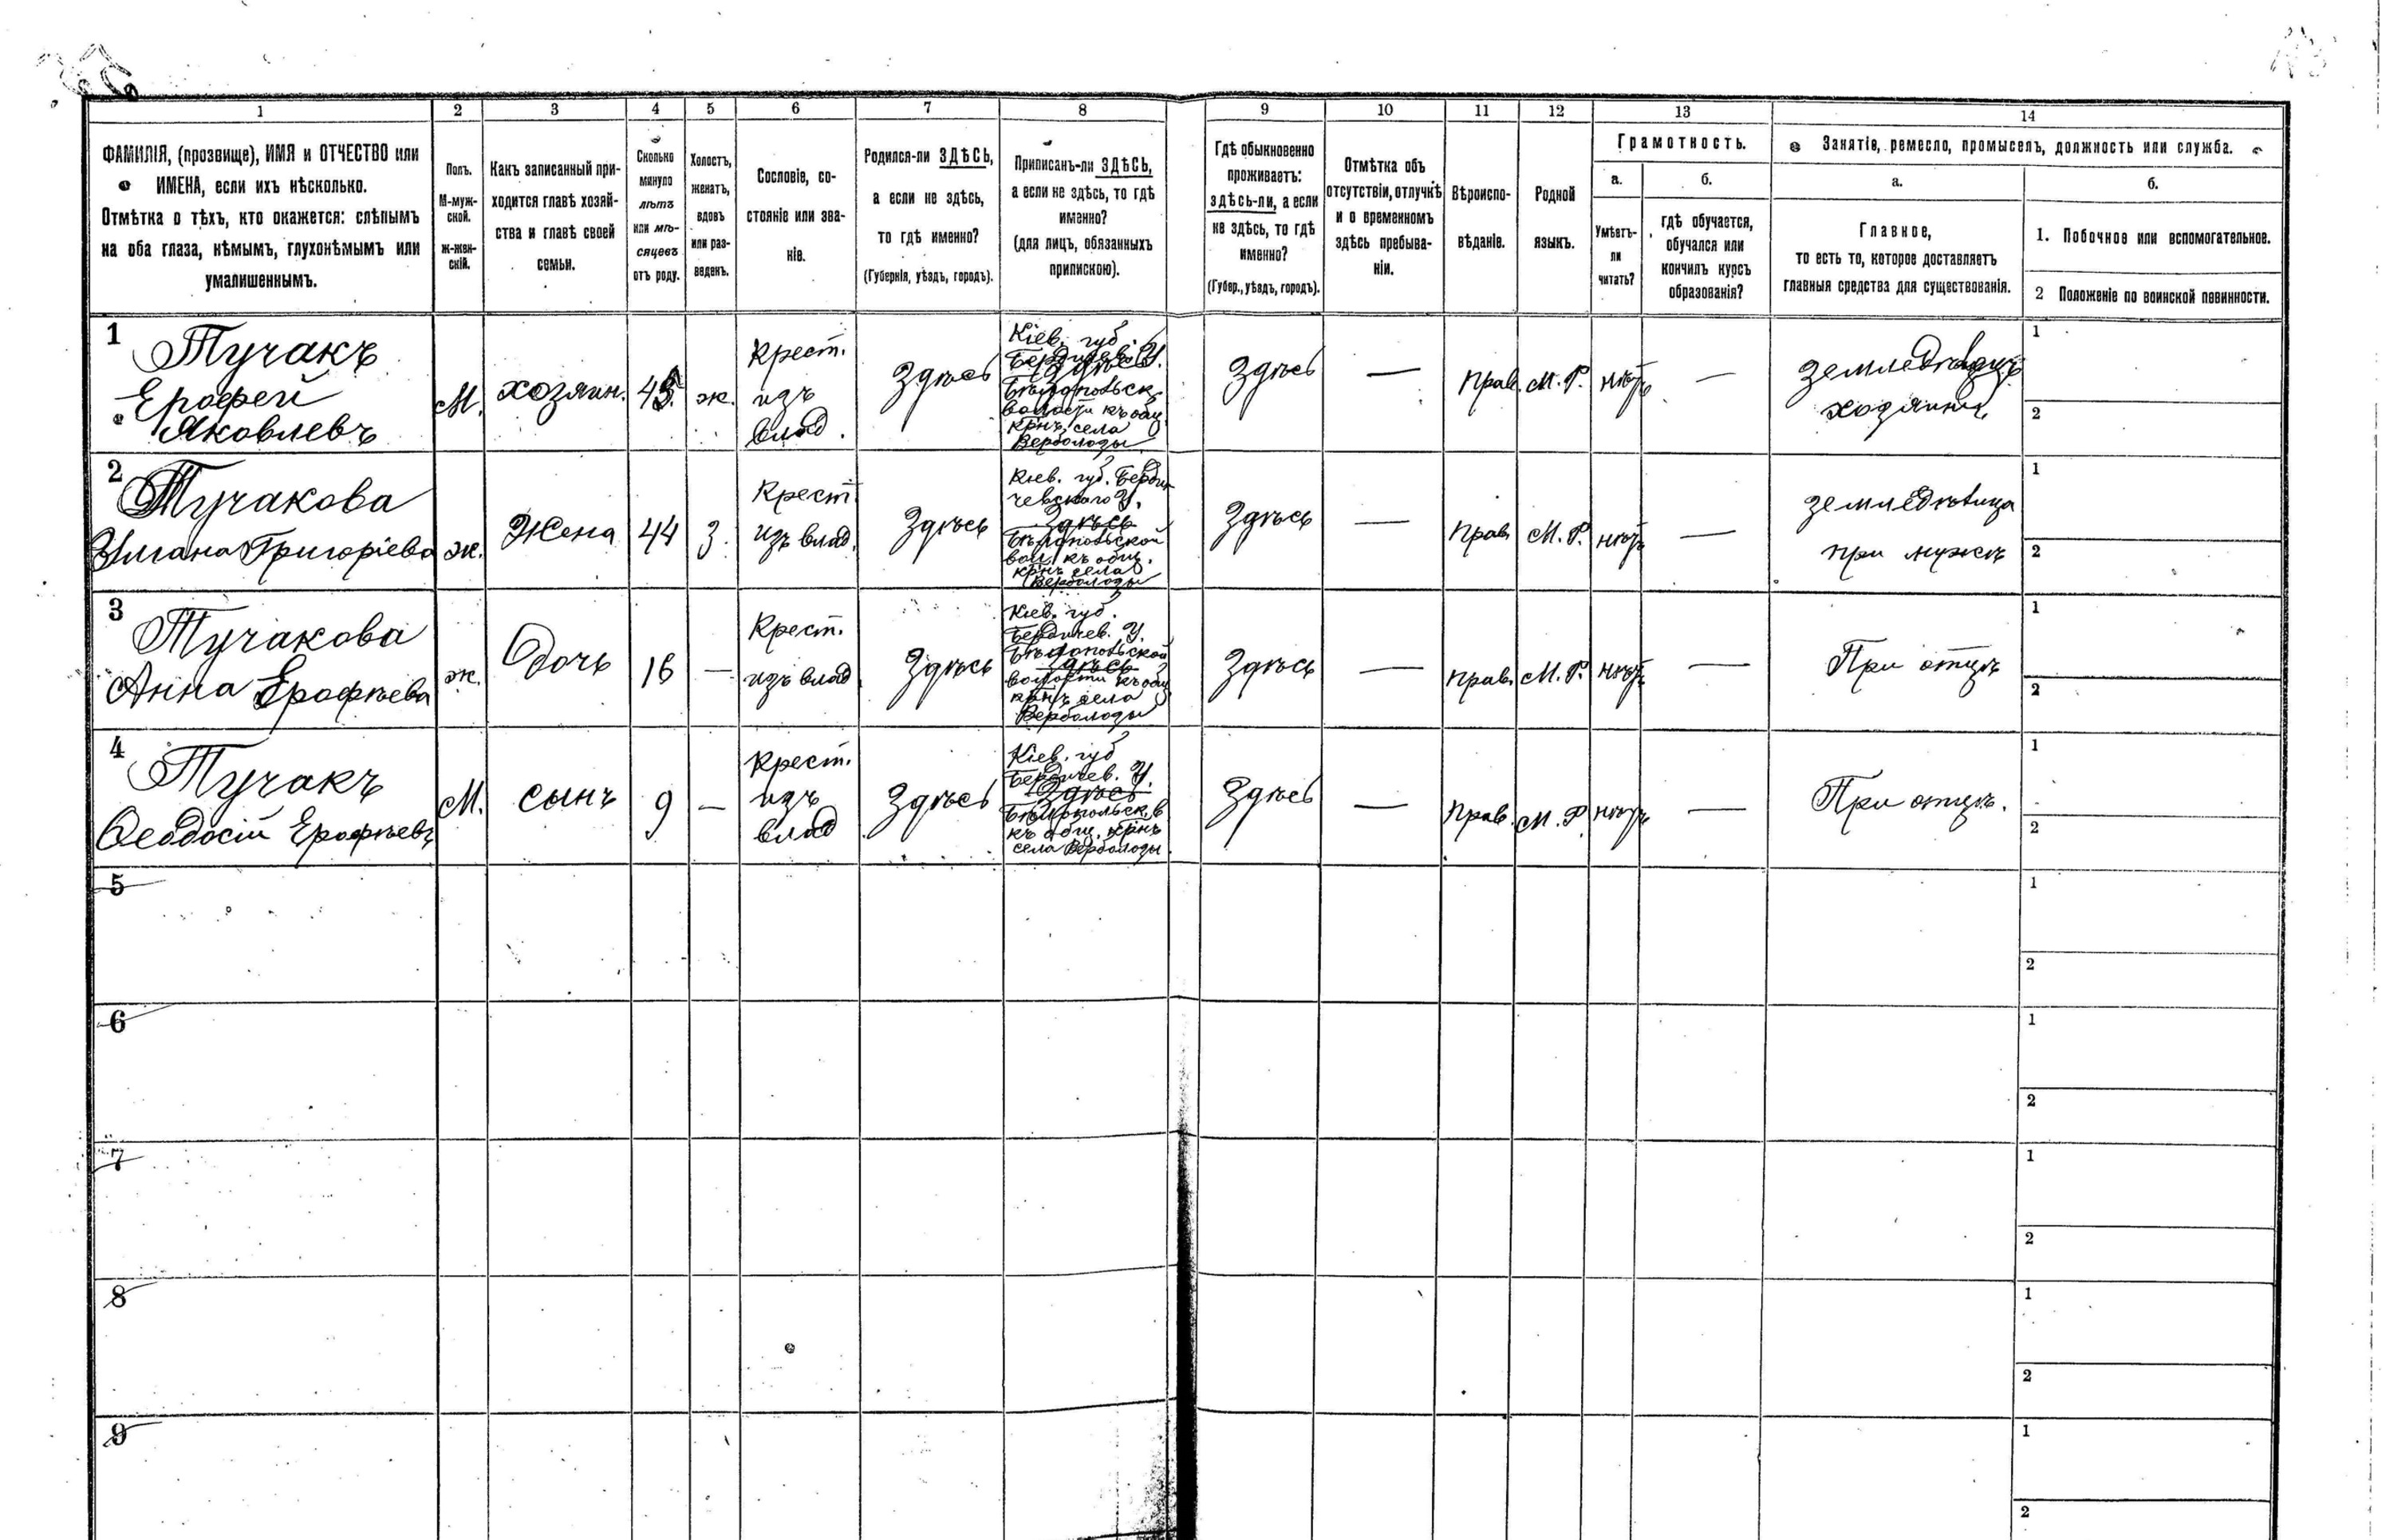 1
2
3
4
5
6
7
8
9
10
11
12
13
14
ФАМИЛІЯ, (прозвище), ИМЯ и ОТЧЕСТВО или
ИМЕНА, если ихъ нѣсколько.
Отмѣтка о тѣхъ, кто окажется: слѣпымъ
на оба глаза, нѣмымъ, глухонѣмымъ или
умалишеннымъ.
Полъ.
М-муж-
ской.
Ж-жен-
скій.
Какъ записанный при-
ходится главѣ хозяй-
ства и главѣ своей
семьи.
Сколько
минуло
лѣтъ
или мѣ-
сяцевъ
отъ роду.
Холостъ,
женатъ,
вдовъ
или раз-
веденъ.
Сословіе, со-
стояніе или зва-
ніе.
Родился-ли ЗДѢСЬ,
а если не здѣсь,
то гдѣ именно?
(Губернія, уѣздъ, городъ).
Приписанъ-ли ЗДѢСЬ,
а если не здѣсь, то гдѣ
именно?
(для лицъ, обязанныхъ
припискою).
Гдѣ обыкновенно
проживаетъ:
здѣсь-ли, а если
не здѣсь, то гдѣ
именно?
(Губер., уѣздъ, городъ).
Отмѣтка объ
отсутствіи, отлучкѣ
и о временномъ
здѣсь пребыва-
ніи.
Вѣроиспо-
вѣданіе.
Родной
языкъ.
Грамотность.
а.
Умѣетъ-
ли
читать?
б.
гдѣ обучается,
обучался или
кончилъ курсъ
образованія?
Занятіе, ремесло, промыселъ, должность или служба.
а.
Главное,
то есть то, которое доставляетъ
главныя средства для существованія.
б.
1. Побочное или вспомогательное.
2 Положеніе по воинской повинности.
1
Тучакъ
Ерофей
Яковлевъ
М.
хозяин.
45
ж.
Крест.
изъ
влад.
Здѣсь
Кіев. губ.
Бердичев. У.
Здѣсь
волости къ общ.
крнъ села
Верболоды
Здѣсь
—
Прав.
М. Р.
нѣтъ
—
земледѣлецъ
хозяинъ
1
2
2
Тучакова
Григоріева
ж.
Жена
44
З.
Крест
изъ влад.
Здѣсь
Кіев. губ. Берди-
чевскаго У.
Здѣсь
Бѣлопольской
вол. къ общ.
крнъ села
Верболоды
Здѣсь
—
Прав.
М. Р.
нѣтъ
—
земледѣлица
при мужѣ
1
2
3
Тучакова
Анна Ерофѣева
ж.
дочь
16
—
Крест.
изъ влад
Здѣсь
Кіев. губ.
Бердичев. У.
Бѣлопольской
Здѣсь
волости къ общ
крнъ села
Верболоды
Здѣсь
—
Прав.
М. Р.
нѣтъ
—
При отцѣ
1
2
4
Тучакъ
Ѳеодосій Ерофѣевъ
М.
сынъ
9
—
Крест.
изъ
влад
Здѣсь
Кіев. губ
Бердичев. У.
Здѣсь
Бѣлопольск. в
къ общ. крнъ
села Верболоды
Здѣсь
—
Прав.
М. Р.
нѣтъ
—
При отцѣ.
1
2
5
1
2
6
1
2
7
1
2
8
1
2
9
1
2